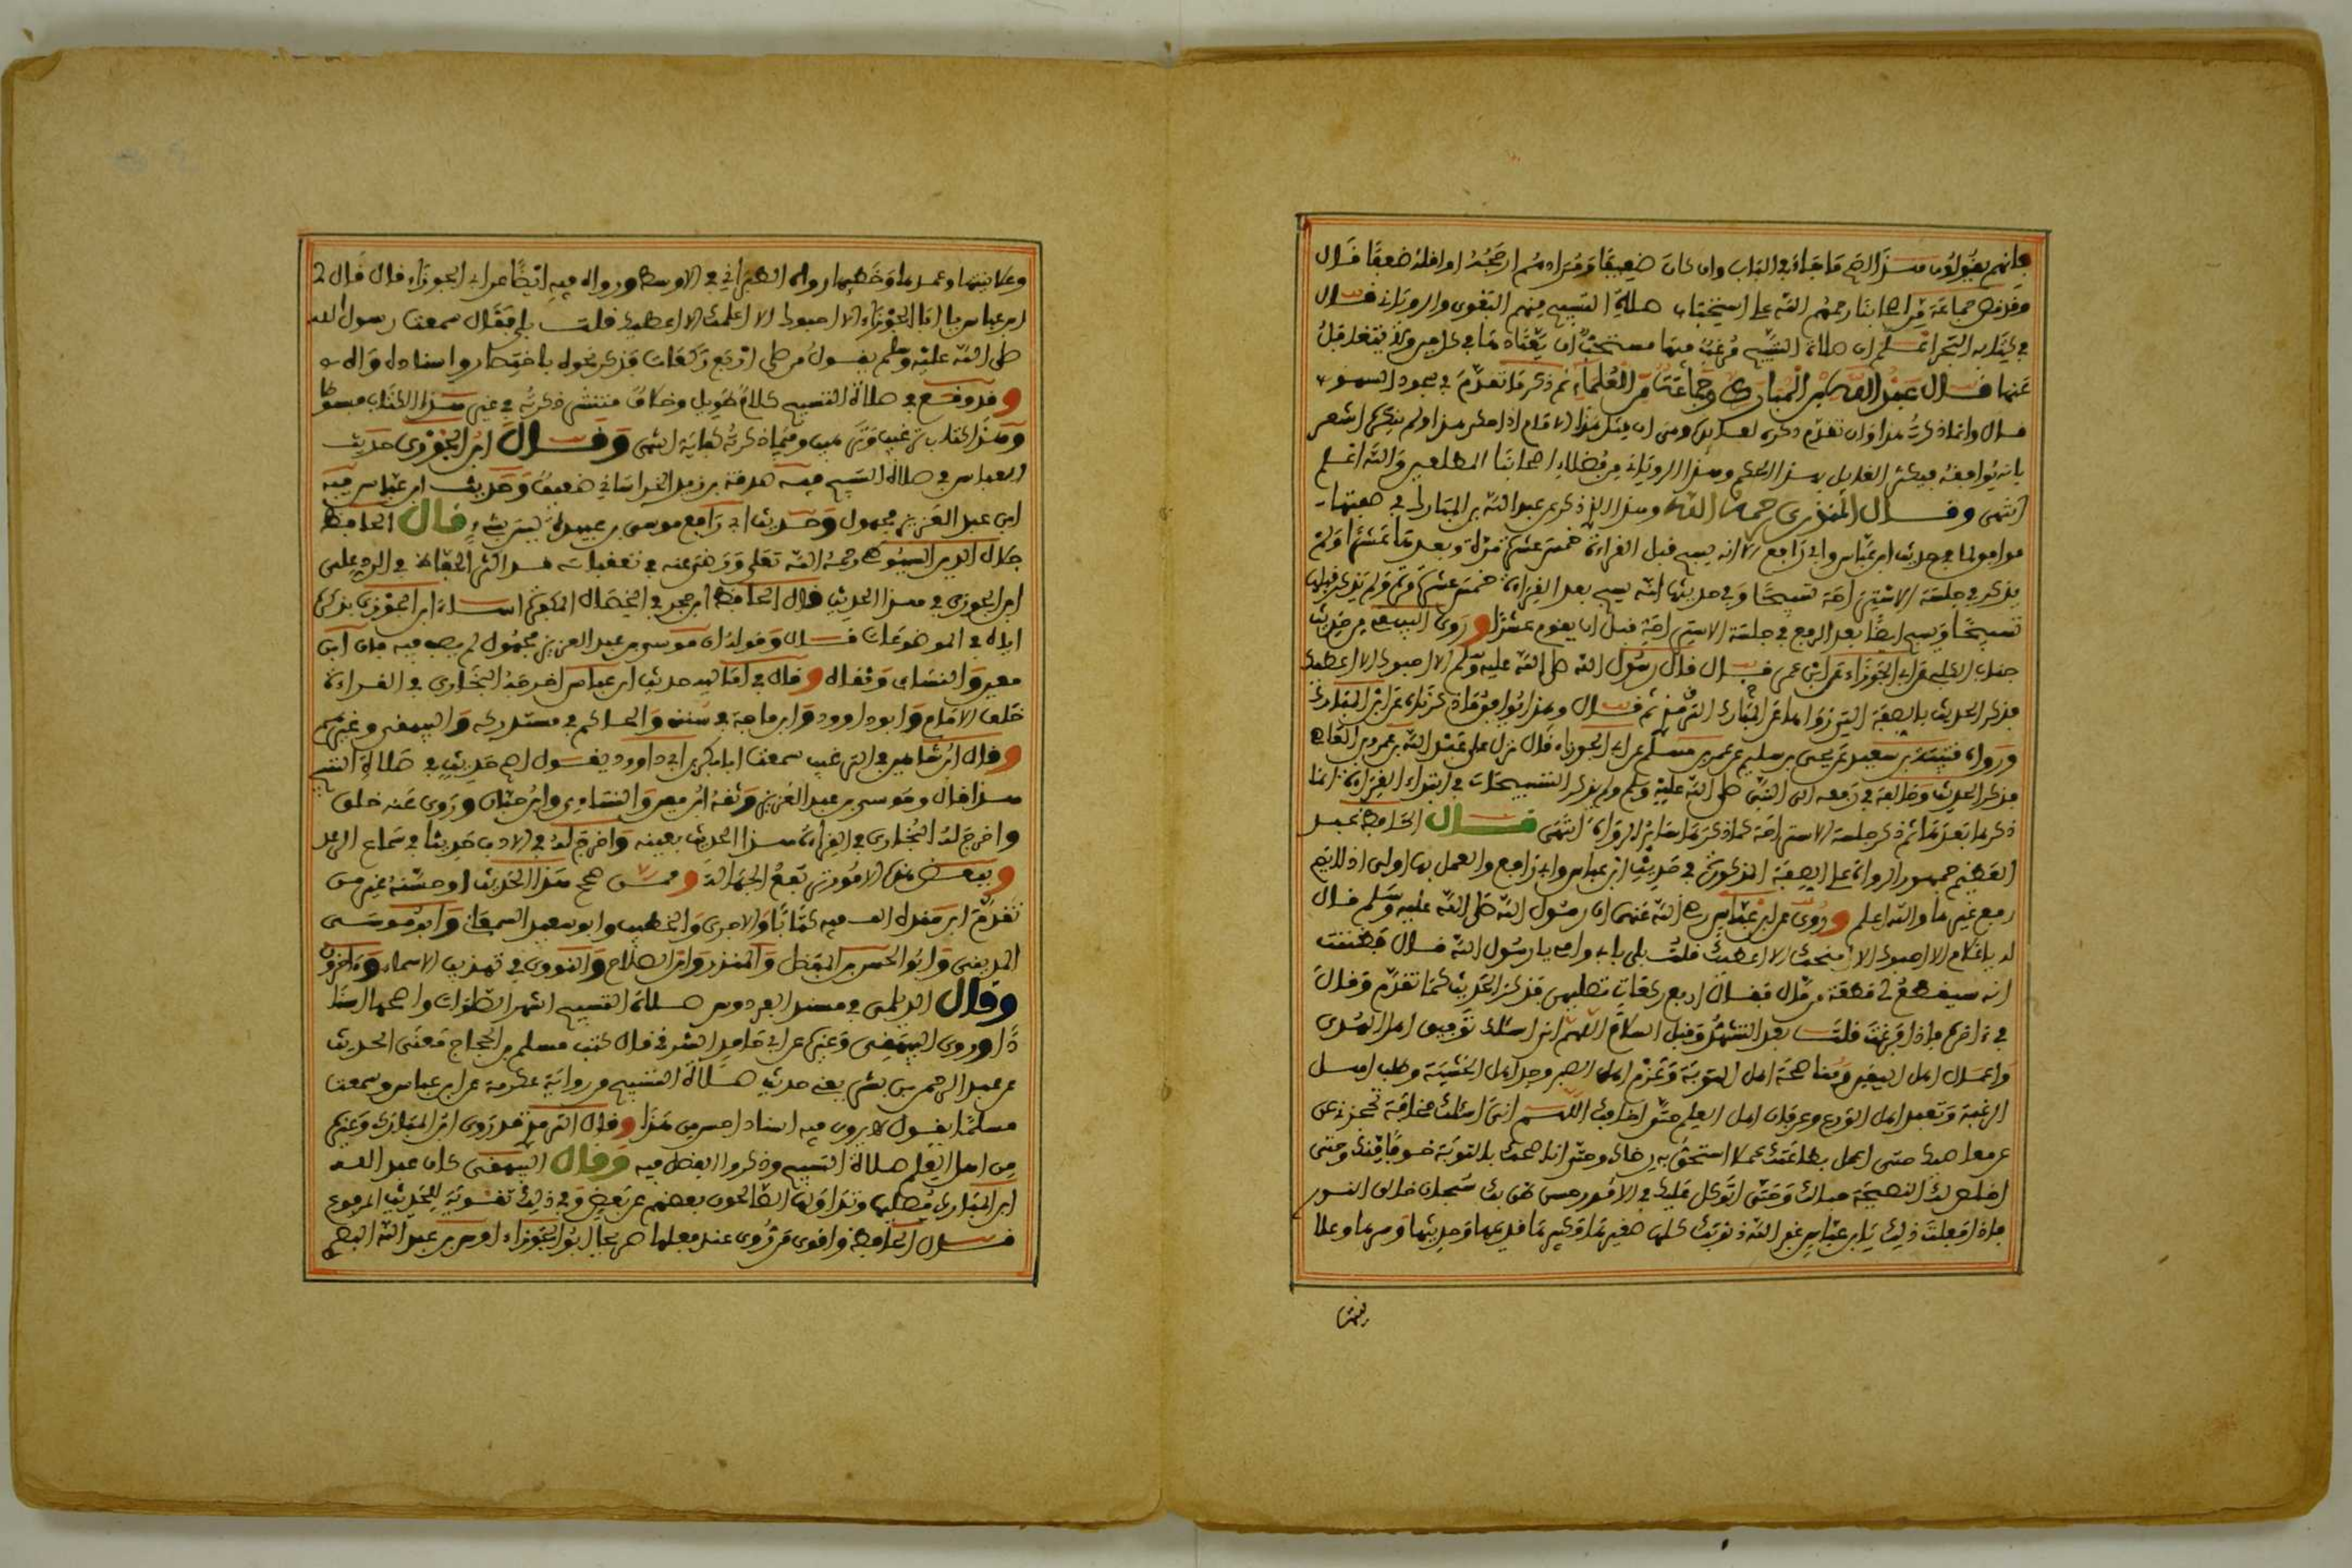 فإنهم يقولون هذا أصح ما جاء في الباب وإن كان ضعيفا ومرادهم أرجحه أو أقله ضعفا قال
وقد نص جماعة من أصحابنا رحمهم الله على استحباب صلاة التسبيح منهم البغوي والروياني قال
في كتابه البحر اعلم أن صلاة التسبيح مرغب فيها مستحب أن يعتادها في كل حين ولا يتغافل
عنها قال عبد الله بن المبارك وجماعة من العلماء ثم ذكر ما تقدم في سجود السهو
قال وإنما ذكرت هذا وإن تقدم ذكره لفائدة وهي أن مثل هذا الإمام إذا حكى هذا ولم ينكره أشعر
بأنه يوافقه فيكثر القائل بهذا الحكم وهذا الروياني من فضلاء أصحابنا المطلعين والله أعلم
انتهى وقال المنذري رحمه الله وهذا الذي ذكر عن عبد الله بن المبارك في صفتها
موافق لما في حديث ابن عباس وأبي رافع إلا أنه يسبح قبل القراءة خمس عشرة مرة وبعدها عشرا ولم
يذكر في جلسة الاستراحة تسبيحا وفي حديثهما أنه يسبح بعد القراءة خمس عشرة مرة ولم يذكر قبلها
تسبيحا ويسبح أيضا بعد الرفع في جلسة الاستراحة قبل أن يقوم عشرا وروى البيهقي من حديث
جناب الكلبي عن أبي الجوزاء عن ابن عمر قال قال رسول الله صلى الله عليه وسلم ألا أحبوك ألا أعطيك
فذكر الحديث بالصفة التي رواها عن المبارك الترمذي ثم قال وهذا يوافق ما ذكرناه عن ابن المبارك
ورواه قتيبة بن سعيد عن يحيى بن سليم عن عمران بن مسلم عن أبي الجوزاء قال نزل علي عبد الله بن عمرو بن العاص
فذكر الحديث وخالفه في رفعه إلى النبي صلى الله عليه وسلم ولم يذكر التسبيحات في ابتداء القراءة إنما
ذكرها بعدها ثم ذكر جلسة الاستراحة كما ذكرها سائر الرواة انتهى قال الحافظ عبد
العظيم جمهور الرواة على الصفة المذكورة في حديث ابن عباس وأبي رافع والعمل بها أولى إذ لا يصح
رفع غيرها والله أعلم وروي عن ابن عباس رضي الله عنهما أن رسول الله صلى الله عليه وسلم قال
له يا غلام ألا أحبوك ألا أنحلك ألا أعطيك قلت بلى بأبي وأمي يا رسول الله قال فظننت
أنه سيقطع لي قطعة من مال فقال أربع ركعات تصليهن فذكر الحديث كما تقدم وقال
في آخره فإذا فرغت قلت بعد التشهد وقبل السلام اللهم إني أسألك توفيق أهل الهدى
وأعمال أهل اليقين ومناصحة أهل التوبة وعزم أهل الصبر وجد أهل الخشية وطلب أهل
الرغبة وتعبد أهل الورع وعرفان أهل العلم حتى أخافك اللهم إني أسألك مخافة تحجزني عن
عن معاصيك حتى أعمل بطاعتك عملا أستحق به رضاك وحتى أناصحك بالتوبة خوفا منك وحتى
أخلص لك النصيحة حبا لك وحتى أتوكل عليك في الأمور حسن ظن بك سبحان خالق النور
فإذا فعلت ذلك يا ابن عباس غفر الله ذنوبك كلها صغيرها وكبيرها قديمها وحديثها وسرها وعلا
نيتها
وعلانيتها وعمدها وخطأها رواه الطبراني في الأوسط ورواه فيه أيضا عن أبي الجوزاء قال قال لي
ابن عباس يا أبا الجوزاء ألا أحبوك ألا أعلمك ألا أعطيك قلت بلى فقال سمعت رسول الله
صلى الله عليه وسلم يقول من صلى أربع ركعات فذكر نحوه باختصار وإسناده واه
وقد وقع في صلاة التسبيح كلام طويل وخلاف منتشر ذكرته في غير هذا الكتاب مبسوطا
وهذا كتاب ترغيب وترهيب وفيما ذكرته كفاية انتهى وقال ابن الجوزي حديث
العباس في صلاة التسبيح فيه صدقة بن يزيد الخراساني ضعيف وحديث ابن عباس فيه
ابن عبد العزيز مجهول وحديث أبي رافع موسى بن عبيدة ليس بشيء قال الحافظ
جلال الدين السيوطي رحمه الله تعلى ورضي عنه في تعقباته قد أكثر الحفاظ في الرد على
ابن الجوزي في هذا الحديث قال الحافظ ابن حجر في الخصال المكفرة أساء ابن الجوزي بذكر
إياه في الموضوعات قال وقوله إن موسى بن عبد العزيز مجهول لم يصب فيه فإن ابن
معين والنسائي وثقاه وقال في أماليه حديث ابن عباس أخرجه البخاري في القراءة
خلف الإمام وأبو داوود وابن ماجة في سننه والحاكم في مستدركه والبيهقي وغيرهم
وقال ابن شاهين في الترغيب سمعت أبا بكر بن أبي داوود يقول أصح حديث في صلاة التسبيح
هذا قال وموسى بن عبد العزيز وثقه ابن معين والنسائي وابن حبان وروى عنه خلق
وأخرج له البخاري في القراءة هذا الحديث بعينه وأخرج له في الأدب حديثا في سماع الرعد
وببعض هذه الأمور ترتفع الجهالة وممن صحح هذا الحديث أو حسنه غير من
تقدم ابن منده ألف فيه كتابا والآجري والخطيب وأبو سعيد السمعاني وأبو موسى
المديني وأبو الحسن بن المفضل والمنذري وابن الصلاح والنووي في تهذيب الأسماء وآخرون
وقال الديلمي في مسند الفردوس صلاة التسبيح أشهر الصلوات وأصحها إسنا
دا وروى البيهقي وغيره عن أبي حامد الشرقي قال كتب مسلم بن الحجاج معنى الحديث
عن عبد الرحمن بن بشر يعني حديث صلاة التسبيح من رواية عكرمة عن ابن عباس وسمعت
مسلما يقول لا يروى فيه إسناد أحسن من هذا وقال الترمذي قد روى ابن المبارك وغيره
من أهل العلم صلاة التسبيح وذكروا الفضل فيه وقال البيهقي كان عبد الله
ابن المبارك يصليها وتداولها الصالحون بعضهم عن بعض وفي ذلك تقوية للحديث المرفوع
قال الحافظ وأقدم من روي عنه فعلها صريحا أبو الجوزاء أوس بن عبد الله البصري